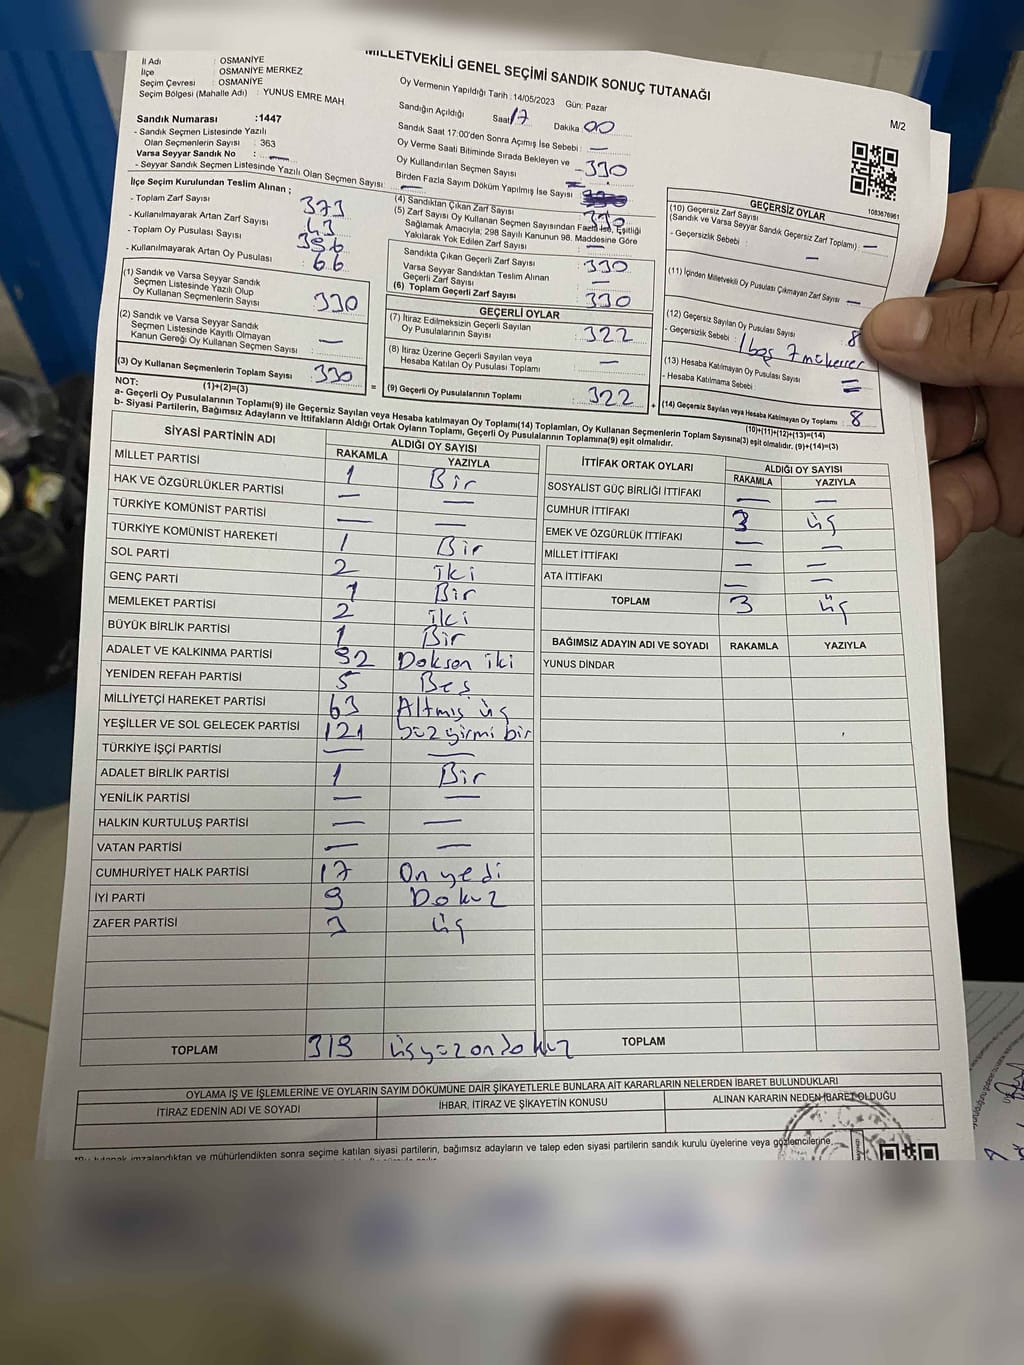 MİLLETVEKİLİ GENEL SEÇİMİ SANDIK SONUÇ TUTANAĞI
İl Adı : OSMANİYE
İlçe : OSMANİYE MERKEZ
Seçim Çevresi : OSMANİYE
Seçim Bölgesi (Mahalle Adı) : YUNUS EMRE MAH
Sandık Numarası :1447
- Sandık Seçmen Listesinde Yazılı
Olan Seçmenlerin Sayısı : 363
Varsa Seyyar Sandık No : —
- Seyyar Sandık Seçmen Listesinde Yazılı Olan Seçmen Sayısı: —
Oy Vermenin Yapıldığı Tarih :14/05/2023 Gün: Pazar
Sandığın Açıldığı Saat 17 Dakika 00
Sandık Saat 17:00'den Sonra Açılmış İse Sebebi : —
Oy Verme Saati Bitiminde Sırada Bekleyen ve
Oy Kullandırılan Seçmen Sayısı
Birden Fazla Sayım Döküm Yapılmış İse Sayısı
M/2
İlçe Seçim Kurulundan Teslim Alınan ;
- Toplam Zarf Sayısı : 373
- Kullanılmayarak Artan Zarf Sayısı : 43
- Toplam Oy Pusulası Sayısı : 396
- Kullanılmayarak Artan Oy Pusulası : 66
(1) Sandık ve Varsa Seyyar Sandık
Seçmen Listesinde Yazılı Olup
Oy Kullanan Seçmenlerin Sayısı : 330
(2) Sandık ve Varsa Seyyar Sandık
Seçmen Listesinde Kayıtlı Olmayan
Kanun Gereği Oy Kullanan Seçmen Sayısı : —
(3) Oy Kullanan Seçmenlerin Toplam Sayısı : 330
(4) Sandıktan Çıkan Zarf Sayısı : 330
(5) Zarf Sayısı Oy Kullanan Seçmen Sayısından Fazla İse, Eşitliği
Sağlamak Amacıyla; 298 Sayılı Kanunun 98. Maddesine Göre
Yakılarak Yok Edilen Zarf Sayısı : —
Sandıkta Çıkan Geçerli Zarf Sayısı : 330
Varsa Seyyar Sandıktan Teslim Alınan
Geçerli Zarf Sayısı : —
(6) Toplam Geçerli Zarf Sayısı : 330
GEÇERLİ OYLAR
(7) İtiraz Edilmeksizin Geçerli Sayılan
Oy Pusulalarının Sayısı : 322
(8) İtiraz Üzerine Geçerli Sayılan veya
Hesaba Katılan Oy Pusulası Toplamı : —
= (9) Geçerli Oy Pusulalarının Toplamı : 322
GEÇERSİZ OYLAR
1083676961
(10) Geçersiz Zarf Sayısı
(Sandık ve Varsa Seyyar Sandık Geçersiz Zarf Toplamı) : —
- Geçersizlik Sebebi : —
(11) İçinden Milletvekili Oy Pusulası Çıkmayan Zarf Sayısı : —
(12) Geçersiz Sayılan Oy Pusulası Sayısı : 8
- Geçersizlik Sebebi : 1 boş 7 mükerrer
(13) Hesaba Katılmayan Oy Pusulası Sayısı : —
- Hesaba Katılmama Sebebi : —
+ (14) Geçersiz Sayılan veya Hesaba Katılmayan Oy Toplamı : 8
NOT: (1)+(2)=(3) (10)+(11)+(12)+(13)=(14)
a- Geçerli Oy Pusulalarının Toplamı(9) ile Geçersiz Sayılan veya Hesaba katılmayan Oy Toplamı(14) Toplamları, Oy Kullanan Seçmenlerin Toplam Sayısına(3) eşit olmalıdır. (9)+(14)=(3)
b- Siyasi Partilerin, Bağımsız Adayların ve İttifakların Aldığı Ortak Oyların Toplamı, Geçerli Oy Pusulalarının Toplamına(9) eşit olmalıdır.
SİYASİ PARTİNİN ADI ALDIĞI OY SAYISI
RAKAMLA YAZIYLA
MİLLET PARTİSİ 1 Bir
HAK VE ÖZGÜRLÜKLER PARTİSİ — —
TÜRKİYE KOMÜNİST PARTİSİ — —
TÜRKİYE KOMÜNİST HAREKETİ 1 Bir
SOL PARTİ 2 iki
GENÇ PARTİ 1 Bir
MEMLEKET PARTİSİ 2 iki
BÜYÜK BİRLİK PARTİSİ 1 Bir
ADALET VE KALKINMA PARTİSİ 92 Doksan iki
YENİDEN REFAH PARTİSİ 5 Beş
MİLLİYETÇİ HAREKET PARTİSİ 63 Altmış üç
YEŞİLLER VE SOL GELECEK PARTİSİ 121 yüz yirmi bir
TÜRKİYE İŞÇİ PARTİSİ — —
ADALET BİRLİK PARTİSİ 1 Bir
YENİLİK PARTİSİ — —
HALKIN KURTULUŞ PARTİSİ — —
VATAN PARTİSİ — —
CUMHURİYET HALK PARTİSİ 17 On yedi
İYİ PARTİ 9 Dokuz
ZAFER PARTİSİ 3 üç
TOPLAM 319 üçyüz on dokuz
İTTİFAK ORTAK OYLARI ALDIĞI OY SAYISI
RAKAMLA YAZIYLA
SOSYALİST GÜÇ BİRLİĞİ İTTİFAKI — —
CUMHUR İTTİFAKI 3 üç
EMEK VE ÖZGÜRLÜK İTTİFAKI — —
MİLLET İTTİFAKI — —
ATA İTTİFAKI — —
TOPLAM 3 üç
BAĞIMSIZ ADAYIN ADI VE SOYADI RAKAMLA YAZIYLA
YUNUS DİNDAR
TOPLAM
OYLAMA İŞ VE İŞLEMLERİNE VE OYLARIN SAYIM DÖKÜMÜNE DAİR ŞİKAYETLERLE BUNLARA AİT KARARLARIN NELERDEN İBARET BULUNDUKLARI
İTİRAZ EDENİN ADI VE SOYADI İHBAR, İTİRAZ VE ŞİKAYETİN KONUSU ALINAN KARARIN NEDEN İBARET OLDUĞU
*Bu tutanak imzalandıktan ve mühürlendikten sonra seçime katılan siyasi partilerin, bağımsız adayların ve talep eden siyasi partilerin sandık kurulu üyelerine veya gözlemcilerine,